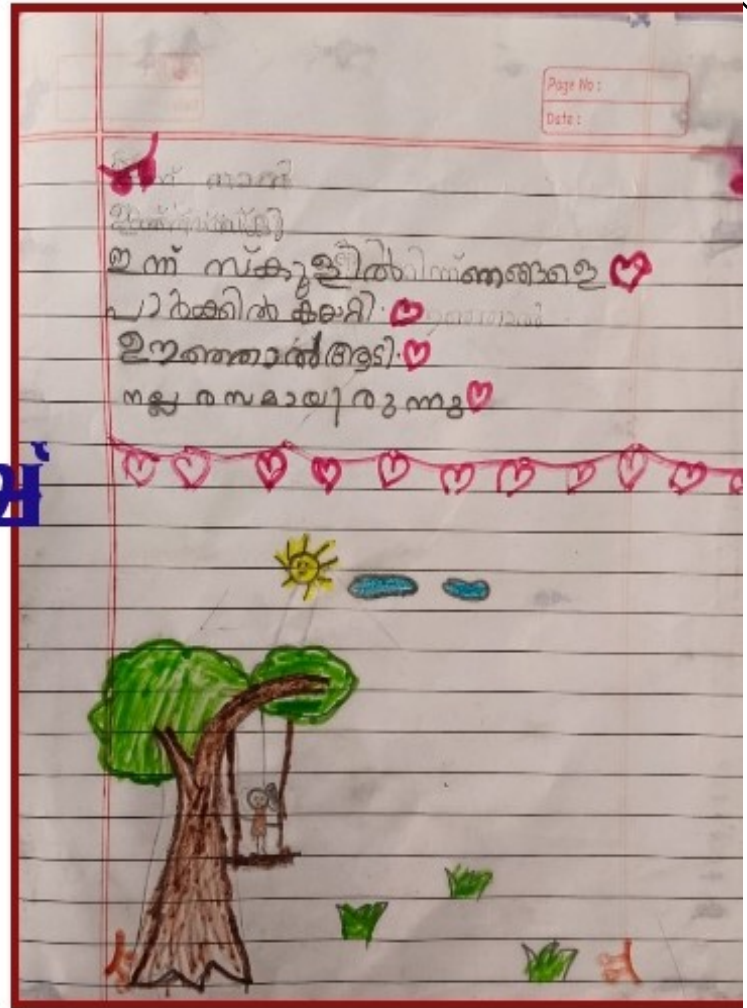 Page No :
Date :
ഇന്ന് സ്കൂളിൽ ഞങ്ങളെ
പാർക്കിൽ കയറ്റി.
ഊഞ്ഞാൽ ആടി.
നല്ല രസമായിരുന്നു